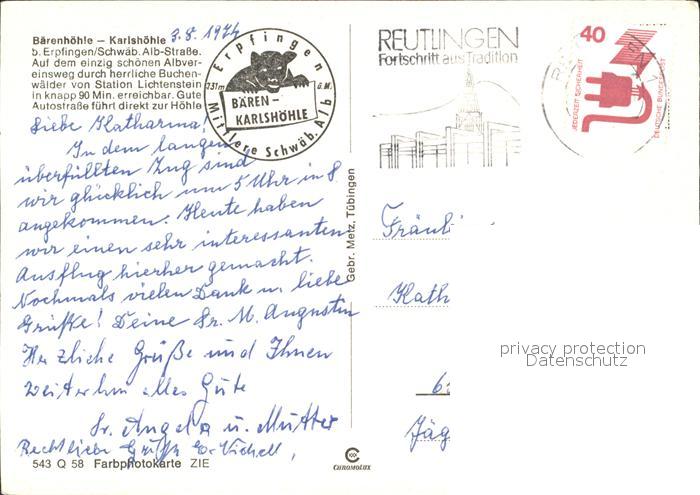 3.8.1974
Bärenhöhle – Karlshöhle
b. Erpfingen/Schwäb. Alb-Straße.
Auf dem einzig schönen Albver-
einsweg durch herrliche Buchen-
wälder von Station Lichtenstein
in knapp 90 Min. erreichbar. Gute
Autostraße führt direkt zur Höhle
Erpfingen
731m ü.M.
BÄREN-
KARLSHÖHLE
Mittlere Schwäb. Alb
REUTLINGEN
Fortschritt aus Tradition
40
JEDERZEIT SICHERHEIT
DEUTSCHE BUNDESPOST
Liebe Katharina!
In dem langen
überfüllten Zug sind
wir glücklich um 5 Uhr in
angekommen. Heute haben
wir einen sehr interessanten
Ausflug hierher gemacht.
Nochmals vielen Dank u. liebe
Grüße! Deine Sr. M. Augustin
Herzliche Grüße und Ihnen
weiterhin alles Gute
Sr. Angela u. Mutter
Recht liebe Grüße
543 Q 58 Farbphotokarte ZIE
Gebr. Metz, Tübingen
CHROMOLUX
Fräuli
Kath
6
Jäg
privacy protection
Datenschutz